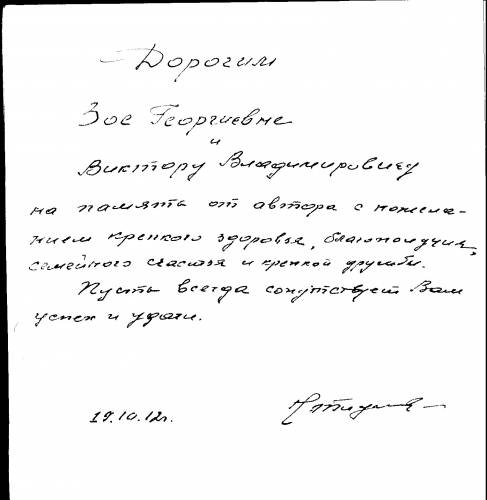 Дорогим
Зое Георгиевне
и
Виктору Владимировичу
на память от автора с пожела-
нием крепкого здоровья, благополучия,
семейного счастья и крепкой дружбы.
Пусть всегда сопутствует Вам
успех и удачи.
19.10.12г.